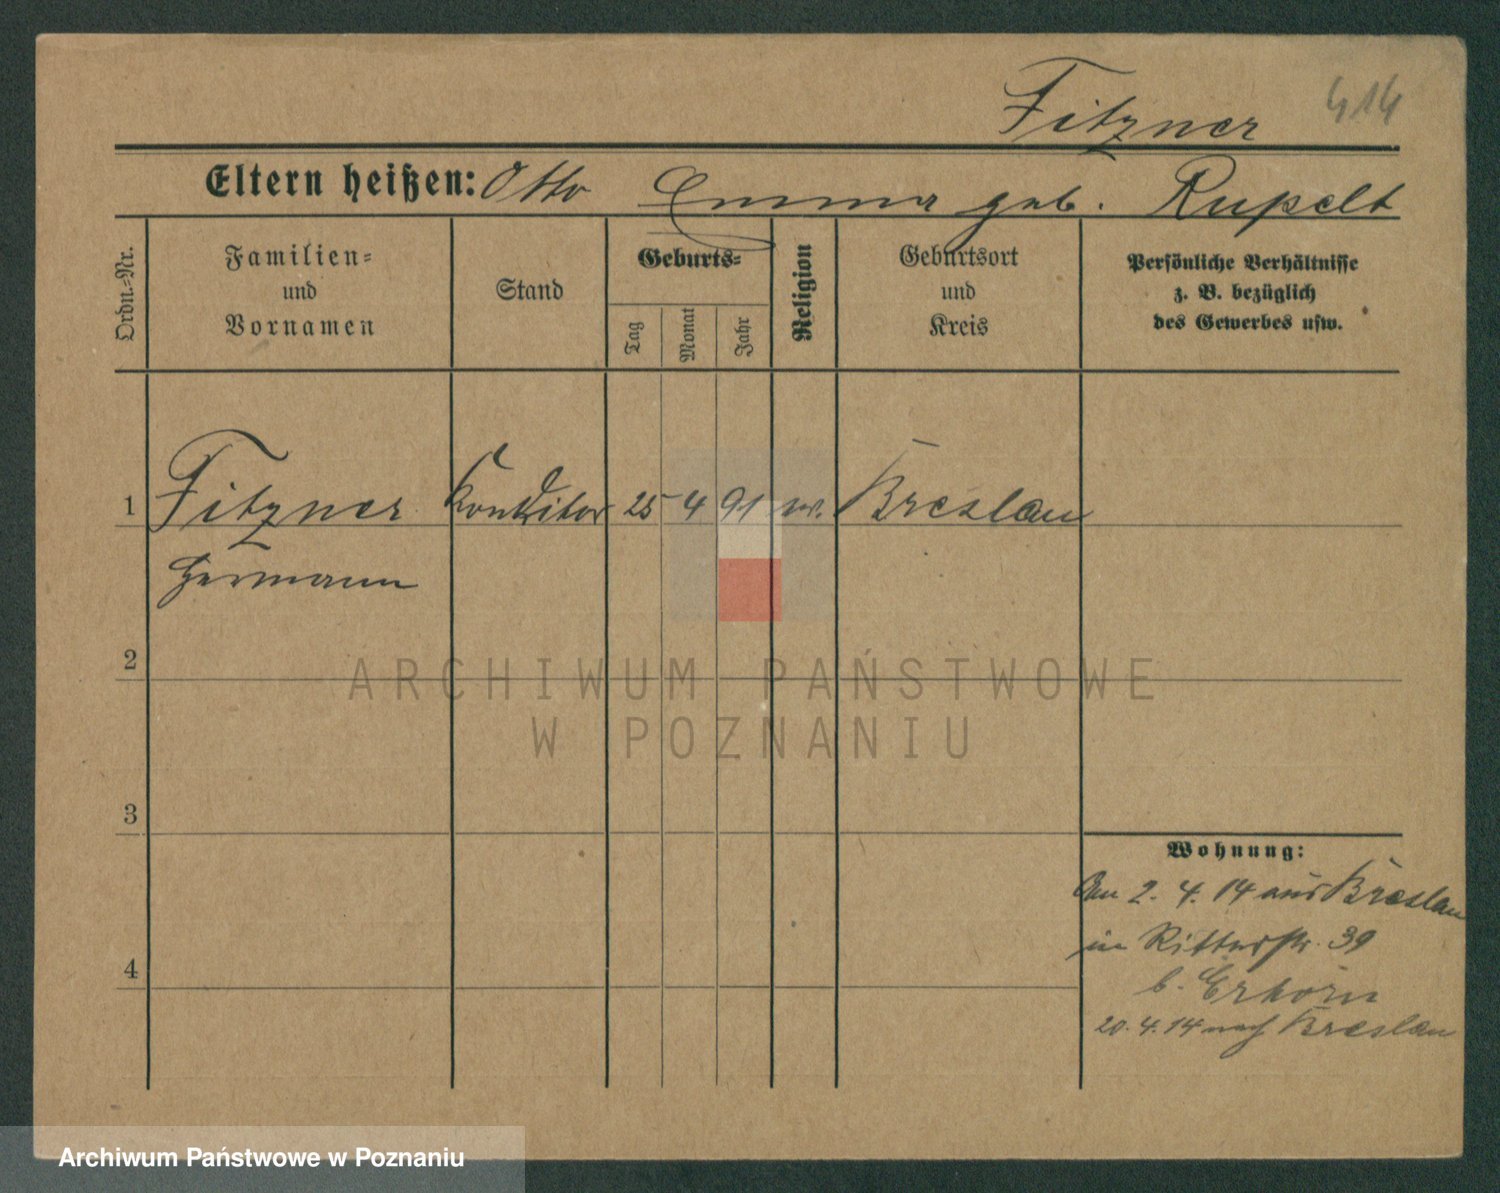 Fitzner 414
Eltern heißen: Otto Emma geb. Rupelt
Ordn.-Nr.
Familien- und Vornamen
Stand
Geburts-
Tag
Monat
Jahr
Religion
Geburtsort und Kreis
Persönliche Verhältnisse
z. B. bezüglich
des Gewerbes usw.
1 Fitzner Konditor 25 4 91 ev. Breslau
Hermann
2
ARCHIWUM PAŃSTWOWE
W POZNANIU
3
Wohnung:
Am 2. 4. 14 aus Breslau
in Ritterstr. 39
4
b. Erhorn
20. 4. 14 nach Breslau
Archiwum Państwowe w Poznaniu